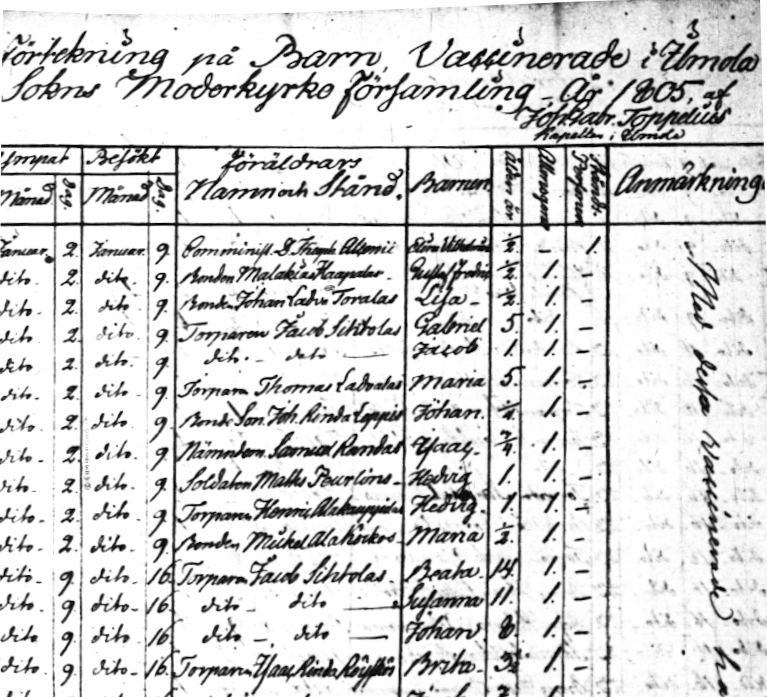 Förtekning på Barn, Vaccinerade i Ilmola
Sokns Moderkyrko församling År 1805, af
Joh. Gabr. Toppelius
Kapellan i Ilmola
Ympat Besökt föräldrars Namn och Stånd. Barnen Ålder år Allmogens Stånds Personers Anmärkning
Månad Dag. Månad Dag.
Januar. 2. Januar. 9. Comminist. D. 1/2 - 1.
dito. 2. dito. 9. Bonden Malakias Kaapalas 1/2 1. -
dito. 2. dito 9. Bonden Johan Ladva Toralas Lisa 1/2 1. -
dito. 2. dito. 9. Torparen Jacob Sihtolas Gabriel 5. 1. -
dito. 2. dito. 9. dito. - dito Jacob 1. 1. -
dito. 2. dito. 9. Torparen Thomas Ladvalas Maria 5. 1. -
dito. 2. dito. 9. Bonde Son. Joh. Rinda Leppis Johan. 1/4 1. -
dito. 2. dito. 9. Nämndem. Samuel Rendas Ysaac. 1. -
dito. 2. dito. 9. Soldaten Matts Hedvig 1. 1. -
dito. 2. dito. 9. Torparen Henric Alakauppilas Hedvig. 1. 1. -
dito. 2. dito. 9. Bonden Mickel Maria 1/2. 1. -
dito. 9. dito. 16. Torparen Jacob Sihtolas. Beata. 14. 1. -
dito. 9. dito. 16. dito - dito Susanna 11. 1. -
dito. 9. dito. 16. dito - dito Johan 8. 1. -
dito. 9. dito. 16. Torparen Ysaac Rinda Brita. 1. -
Med dessa vaccinerade